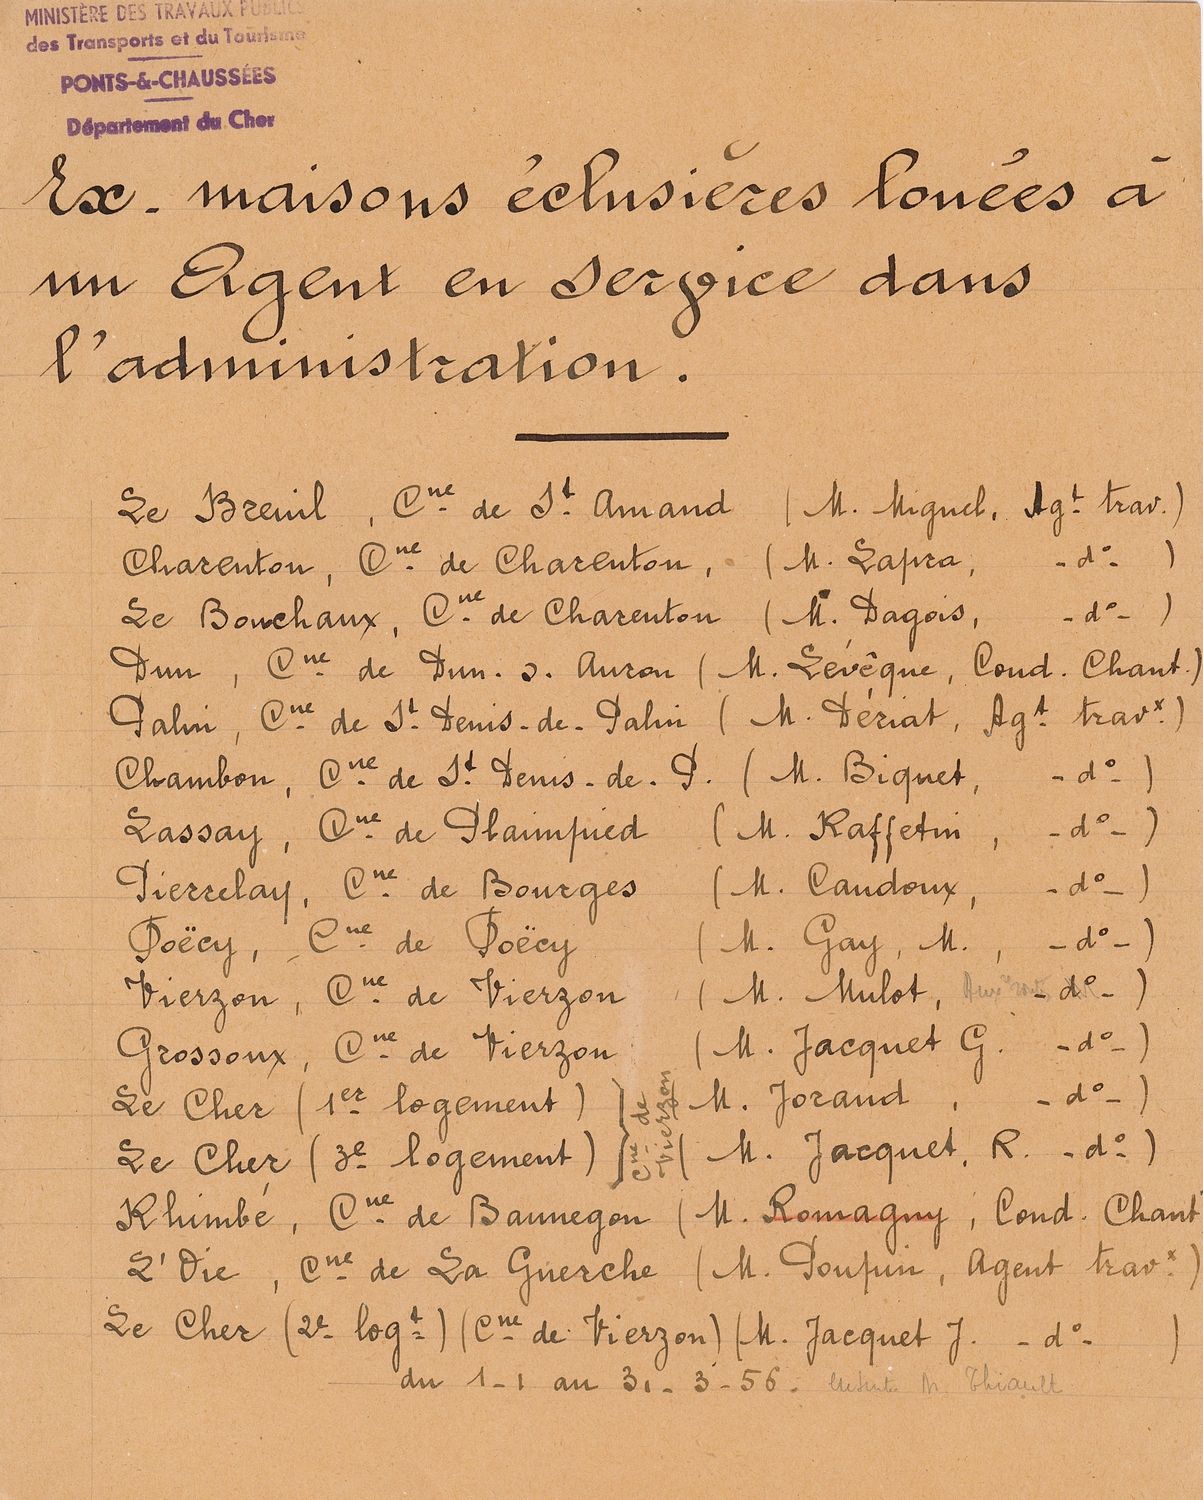 MINISTÈRE DES TRAVAUX PUBLICS
des Transports et du Tourisme
PONTS-&-CHAUSSÉES
Département du Cher
Ex. maisons éclusières louées à
un Agent en service dans
l'administration.
Le Breuil, Cne de St Amand (M. Miguel, Agt trav.)
Charenton, Cne de Charenton, (M. Lapra, -do- )
Le Bouchaux, Cne de Charenton (M. Dagois, -do- )
Dun, Cne de Dun. s. Auron (M. Lévêque, Cond. Chant.)
Palin, Cne de St Denis-de-Palin (M. Dériat, Agt travx)
Chambon, Cne de St Denis-de-P. (M. Biquet, -do- )
Lassay, Cne de Plaimpied (M. Raffetin, -do- )
Pierrelay, Cne de Bourges (M. Caudoux, -do- )
Foëcy, Cne de Foëcy (M. Gay, M., -do- )
Vierzon, Cne de Vierzon (M. Mulot, -do- )
Grossoux, Cne de Vierzon (M. Jacquet G. -do- )
Le Cher (1er logement) } Cne de Vierzon M. Jorand, -do- )
Le Cher (3e logement) } (M. Jacquet, R. -do- )
Rhimbé, Cne de Bannegon (M. Romagny, Cond. Chant
L'Oie, Cne de La Guerche (M. Poupin, Agent travx)
Le Cher (2e logt) (Cne de Vierzon) (M. Jacquet J. -do- )
du 1-1 au 31-3-56. M. Thiault